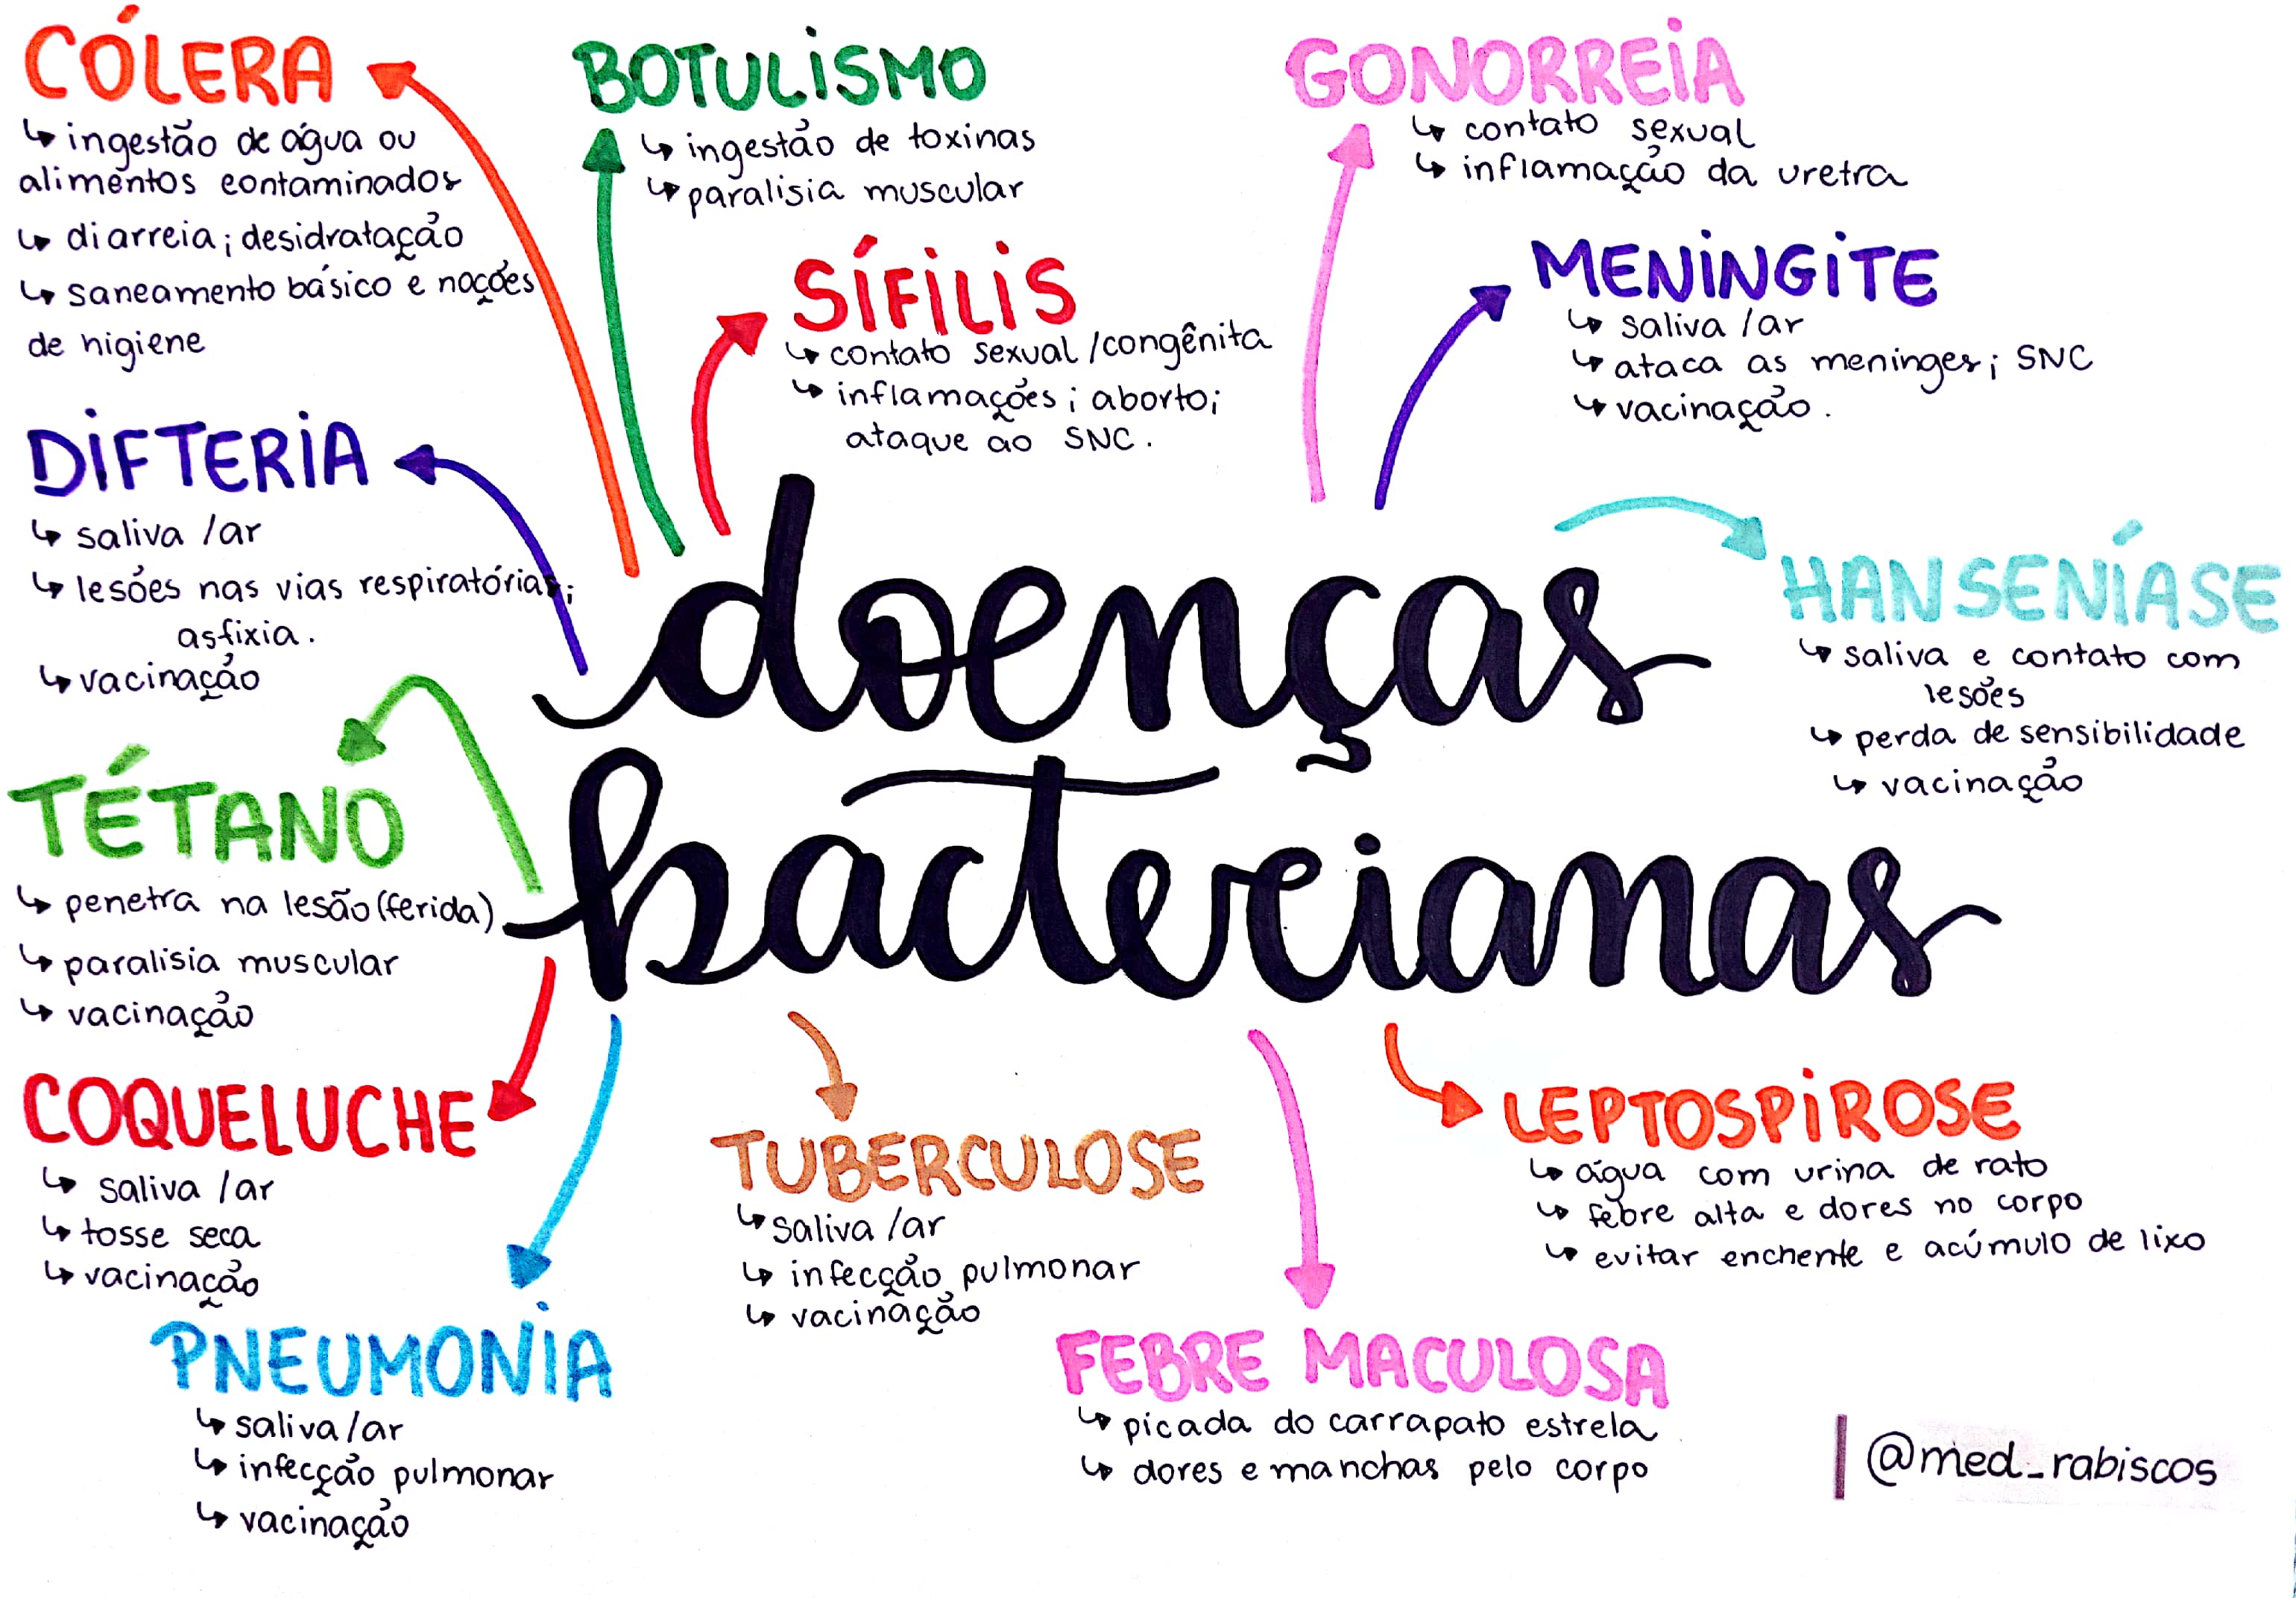 CÓLERA
↳ ingestão de água ou
alimentos contaminados
↳ diarreia; desidratação
↳ saneamento básico e noções
de higiene
BOTULISMO
↳ ingestão de toxinas
↳ paralisia muscular
SÍFILIS
↳ contato sexual/congênita
↳ inflamações; aborto;
ataque ao SNC.
GONORREIA
↳ contato sexual
↳ inflamação da uretra
MENINGITE
↳ saliva/ar
↳ ataca as meninges; SNC
↳ vacinação.
DIFTERIA
↳ saliva/ar
↳ lesões nas vias respiratórias;
asfixia.
↳ vacinação
doenças
bacterianas
HANSENÍASE
↳ saliva e contato com
lesões
↳ perda de sensibilidade
↳ vacinação
TÉTANO
↳ penetra na lesão (ferida)
↳ paralisia muscular
↳ vacinação
COQUELUCHE
↳ saliva/ar
↳ tosse seca
↳ vacinação
PNEUMONIA
↳ saliva/ar
↳ infecção pulmonar
↳ vacinação
TUBERCULOSE
↳ saliva/ar
↳ infecção pulmonar
↳ vacinação
FEBRE MACULOSA
↳ picada do carrapato estrela
↳ dores e manchas pelo corpo
LEPTOSPIROSE
↳ água com urina de rato
↳ febre alta e dores no corpo
↳ evitar enchente e acúmulo de lixo
@med_rabiscos